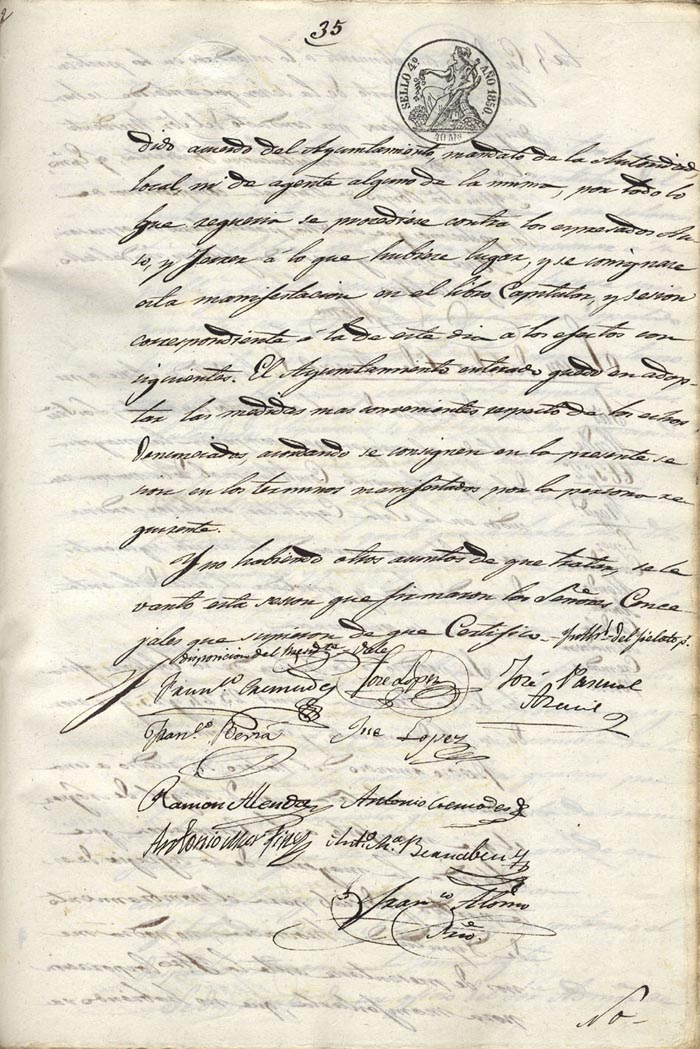 35
SELLO 4º AÑO 1850.
40 MS
dido acuerdo del Ayuntamiento, mandato de la Autoridad
local ni de agente alguno de la misma, por todo lo
que requeria se procediese contra los espresados
y á lo que hubiere lugar, y se consignase
esta manifestacion en el libro Capitular, y sesion
correspondiente á la de este dia á los efectos con
siguientes. El Ayuntamiento enterado quedó en adop
tar las medidas mas convenientes respecto de los echos
denunciados, acordando se consignen en la presente se
sion en los terminos manifestados por la persona re
quirente.
Y no habiendo otros asuntos de que tratar, se le
vantó esta sesion que firmaron los Señores Conce
jales que supieron de que Certifico.
disposicion del vale
José Lopez José Pascual
Jose Lopez
Ramon Antonio
Antonio Martinez Bernabeu
Franco Alonso
Srio.
No